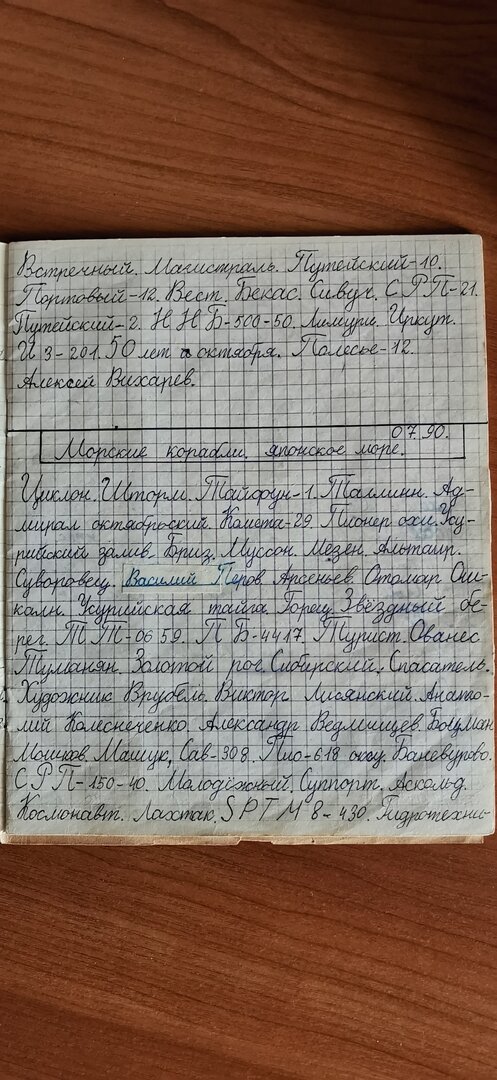 Встречный. Магистраль. Путейский-10.
Портовый-12. Вест. Бекас. Сивуч. С Р П-21.
Путейский-2. Н Н Б-500-50. Лемури. Иркут.
И З-201. 50 лет октября. Полесье-12.
Алексей Вихарев.
07.90.
Морские корабли. японское море.
Циклон. Шторм. Тайфун-1. Таллинн. Ад-
мирал октябрьский. Комета-29. Пионер охи. Усу-
рийский залив. Бриз. Муссон. Мезен. Альтаир.
Суворовец. Василий Перов. Арсеньев. Отомар Ош-
калн. Усурийская тайга. Горец. Звёздный бе-
рег. Т Т-0659. П Б-4417. Турист. Ованес
Туманян. Золотой рог. Сибирский. Спасатель.
Художник Врубель. Виктор Лисянский. Анато-
лий Колеснеченко. Александр Ведмищев. Боцман
Мошков. Машук. Сав-308. Пио-618 оху. Баневурово.
С Р П-150-40. Молодёжный. Суппорт. Аскольд.
Космонавт. Лахтак. S P T M 8-430. Гидротехни-